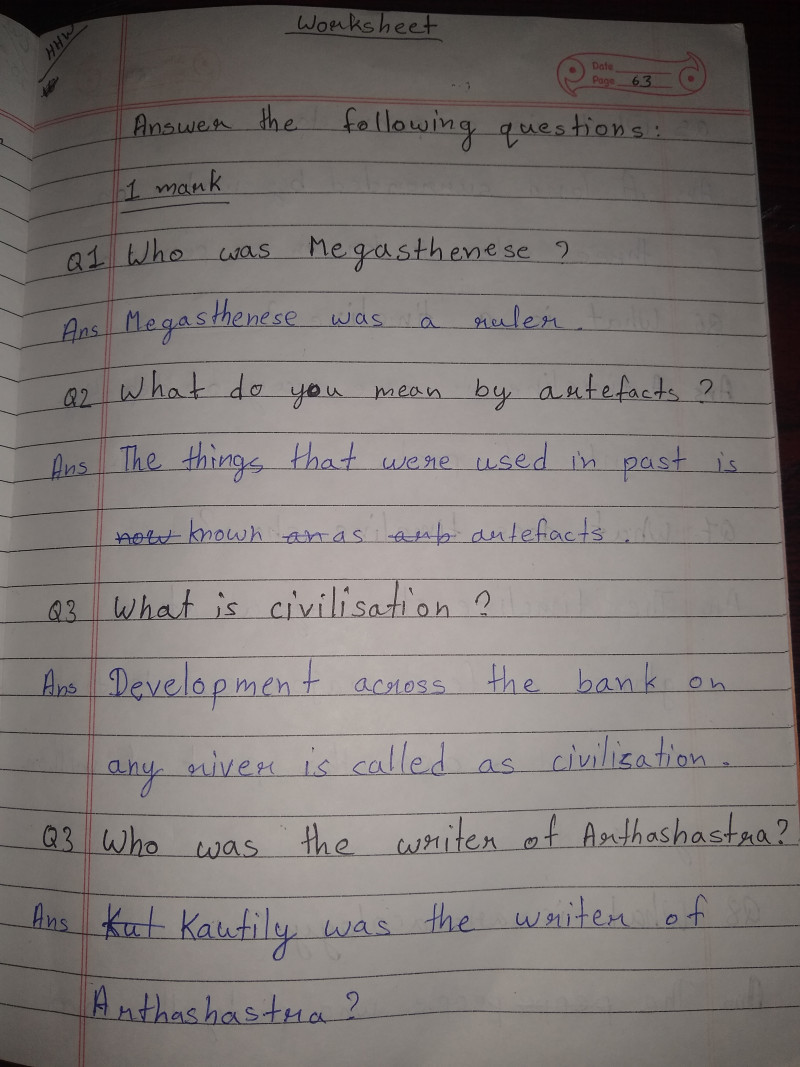 Worksheet
HHW
Date
Page 63
Answer the following questions:
1 mark
Q1 Who was Megasthenese ?
Ans Megasthenese was a ruler.
Q2 What do you mean by artefacts ?
Ans The things that were used in past is
now known an as arb artefacts .
Q3 What is civilisation ?
Ans Development across the bank on
any river is called as civilisation .
Q3 Who was the writer of Arthashastra?
Ans Kut Kautily was the writer of
Arthashastra ?